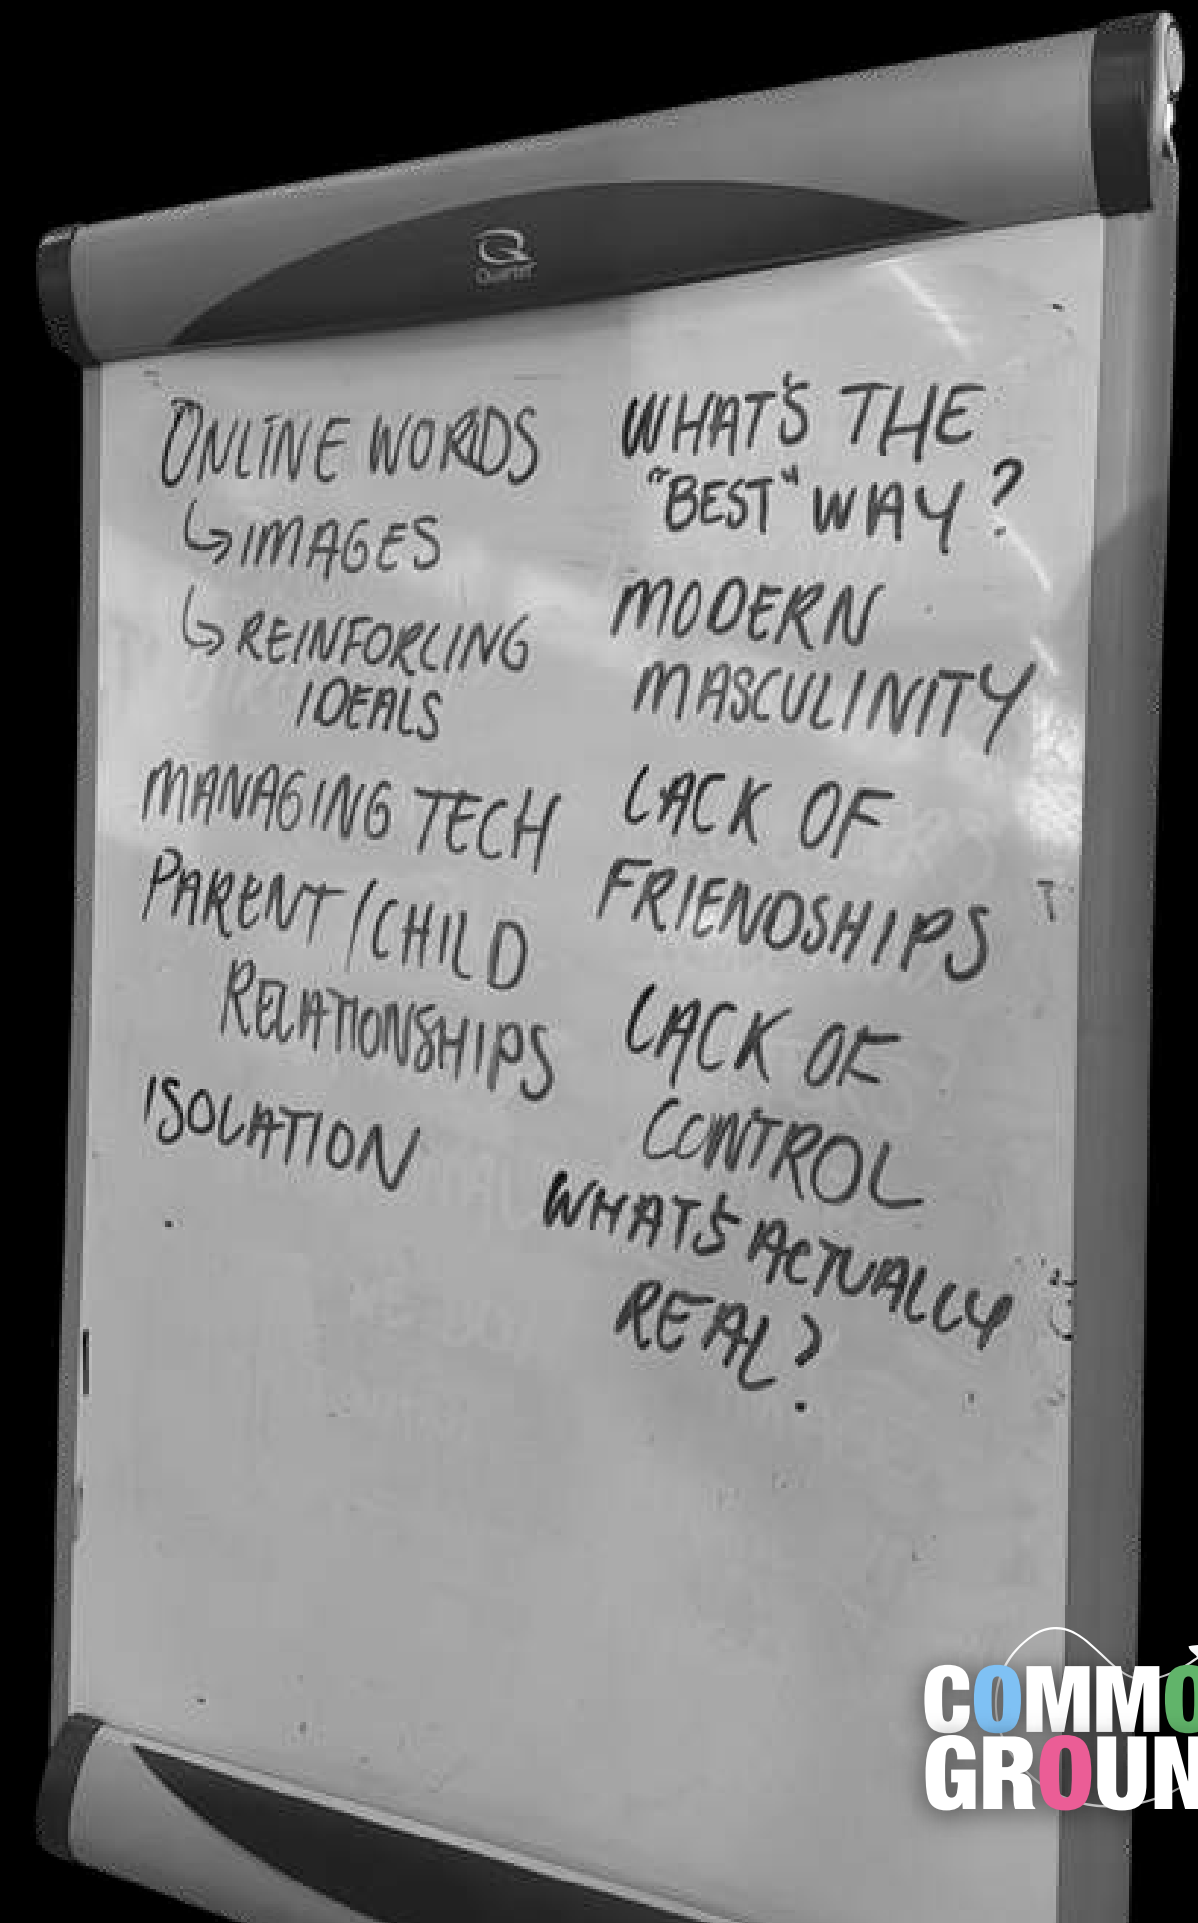 Quartet
ONLINE WORDS
↳ IMAGES
↳ REINFORCING
IDEALS
MANAGING TECH
PARENT / CHILD
RELATIONSHIPS
ISOLATION
WHAT'S THE
"BEST" WAY?
MODERN
MASCULINITY
LACK OF
FRIENDSHIPS
LACK OF
CONTROL
WHAT'S ACTUALLY
REAL?
COMMO
GROUN